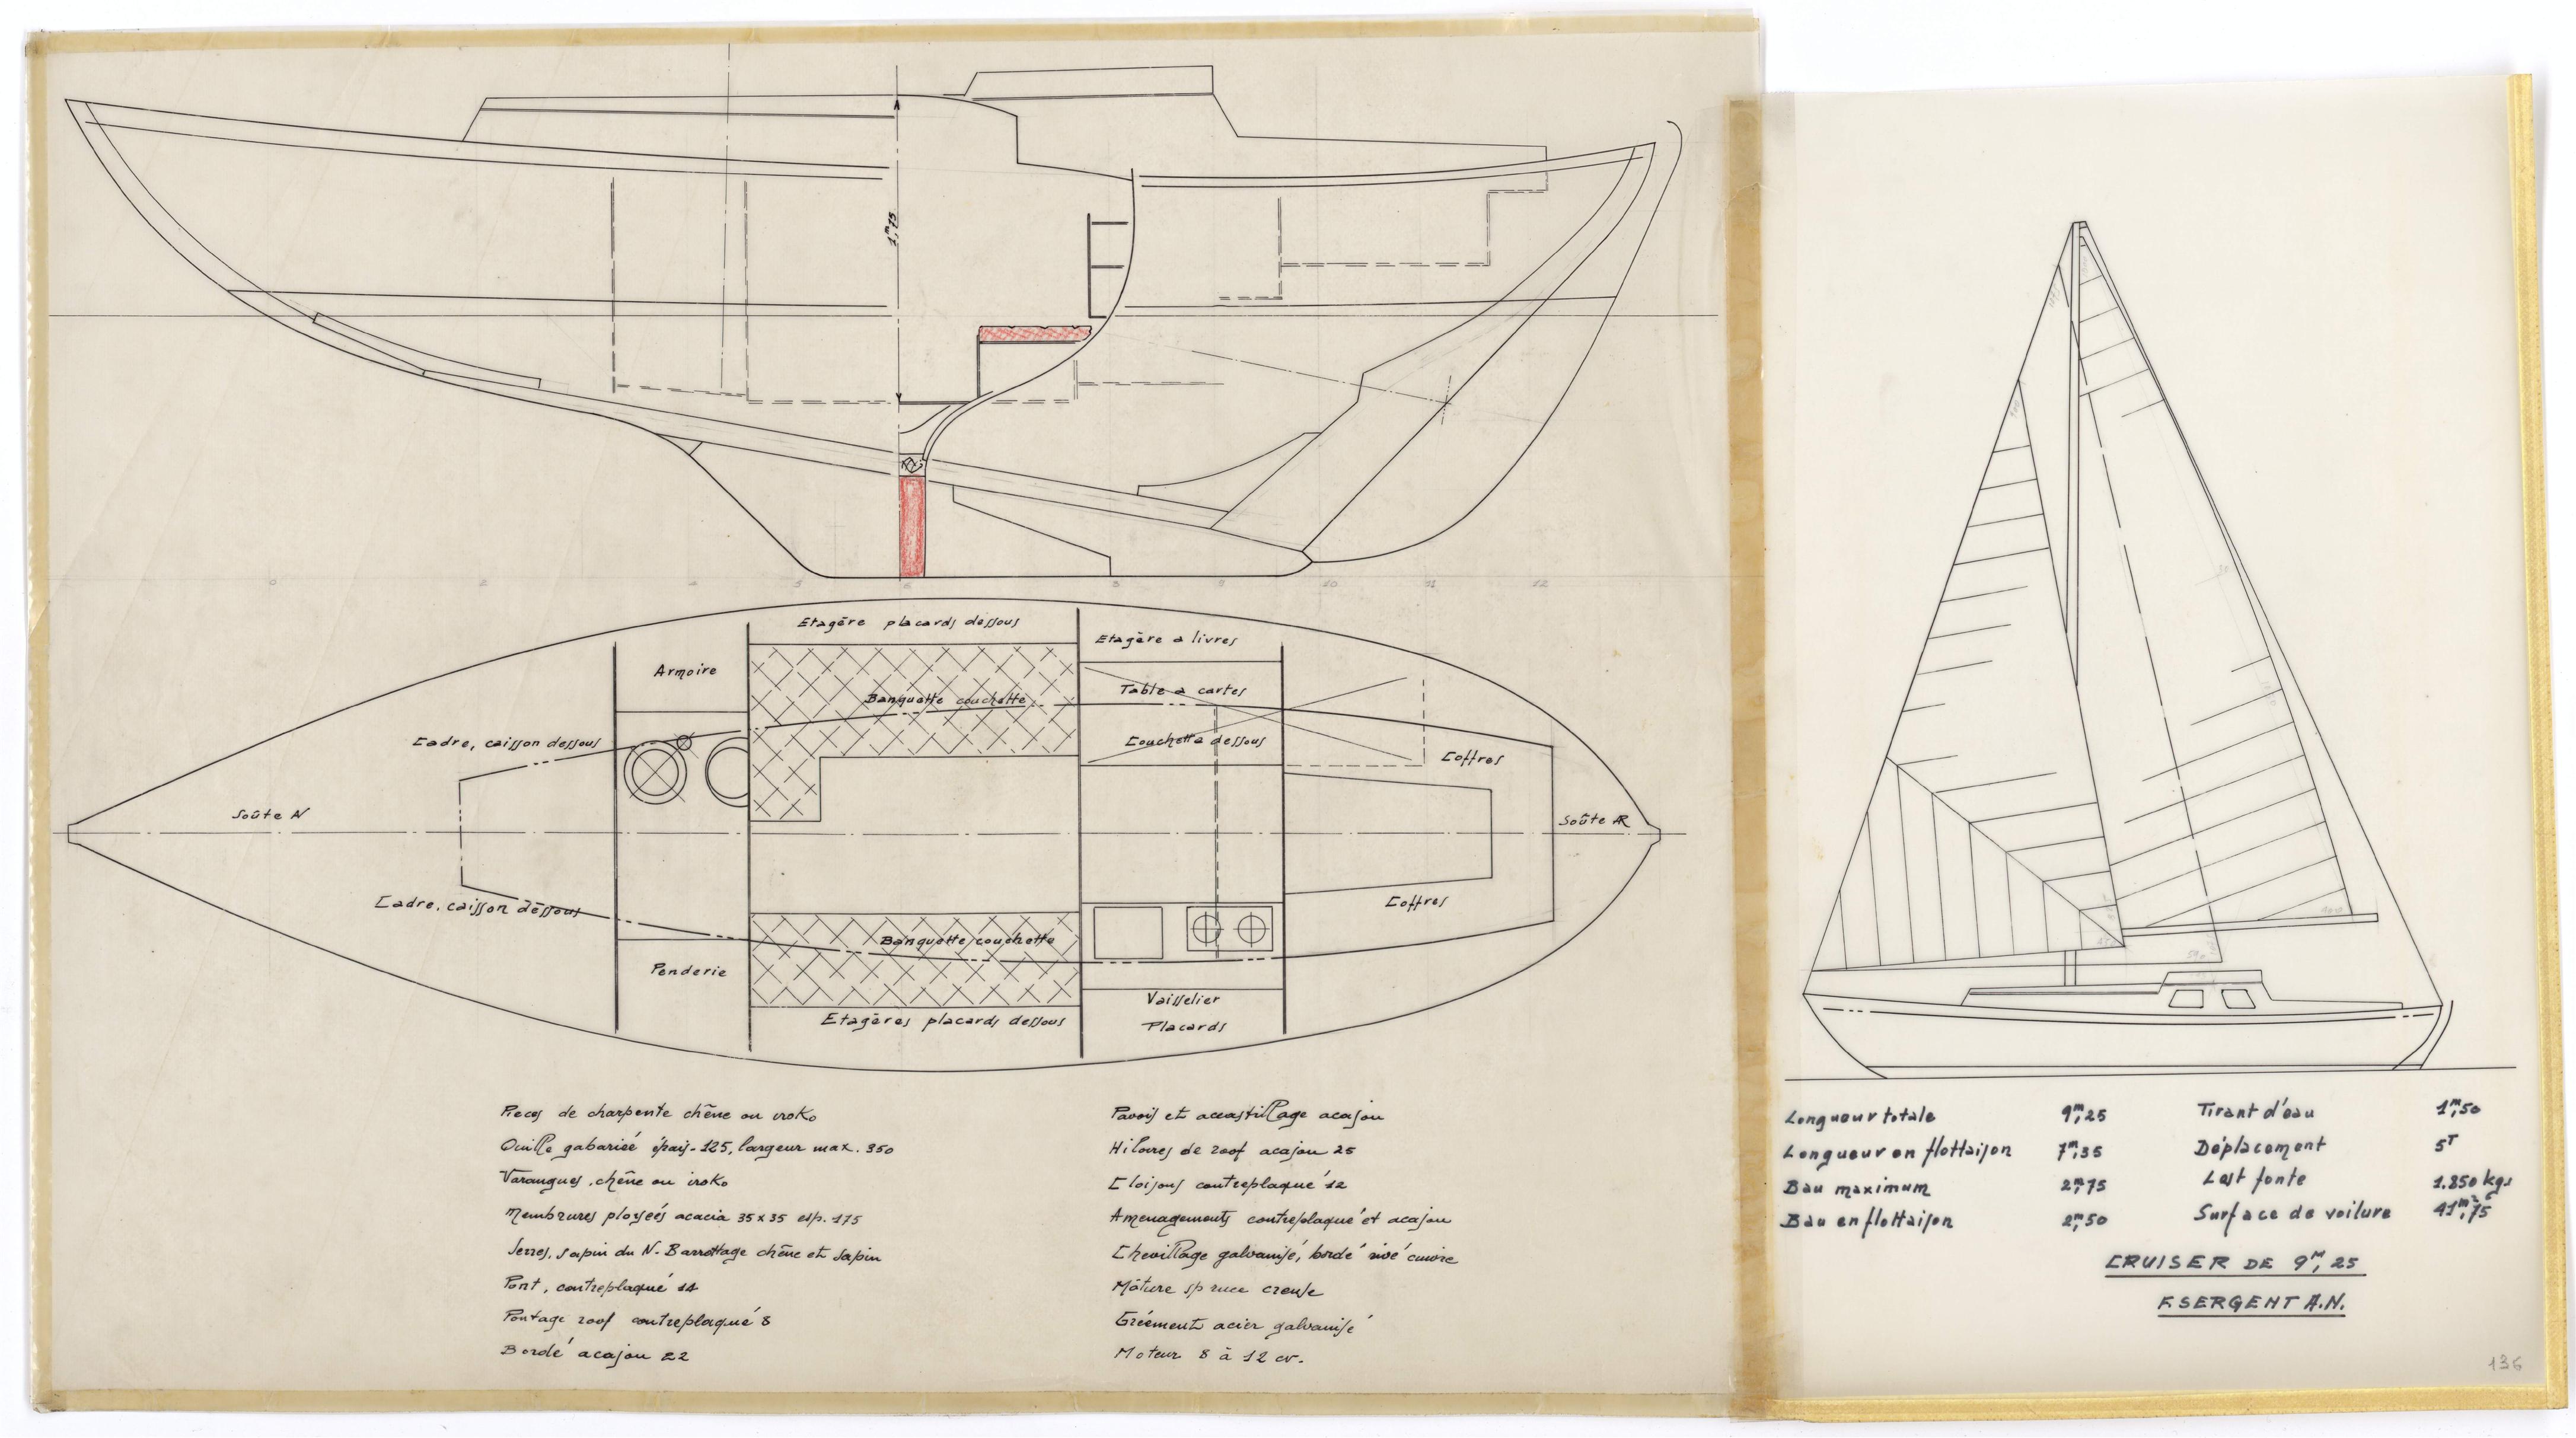 1m,75
0 2 4 5 6 8 9 10 11 12
Etagère placards dessous
Etagère a livres
Armoire
Banquette couchette
Table a cartes
Cadre, caisson dessous
Couchette dessous
Coffres
Soûte AV
Soûte AR
Cadre, caisson dessous
Coffres
Banquette couchette
Penderie
Vaisselier
Etagères placards dessous
Placards
Pieces de charpente chêne ou iroko
Quille gabariée épais. 125, largeur max. 350
Varangues, chêne ou iroko
Membrures ployées acacia 35x35 esp. 175
Serres, sapin du N. Barrottage chêne et sapin
Pont, contreplaqué 14
Pontage roof contreplaqué 8
Bordé acajou 22
Pavois et accastillage acajou
Hiloires de roof acajou 25
Cloisons contreplaqué 12
Amenagements contreplaqué et acajou
Chevillage galvanisé, bordé rivé cuivre
Mâture spruce creuse
Gréement acier galvanisé
Moteur 8 à 12 cv.
Longueur totale 9m,25 Tirant d'eau 1m,50
Longueur en flottaison 7m,35 Déplacement 5T
Bau maximum 2m,75 Lest fonte 1.850 kgs
Bau en flottaison 2m,50 Surface de voilure 41m2,75
CRUISER DE 9M,25
F. SERGENT A.N.
136